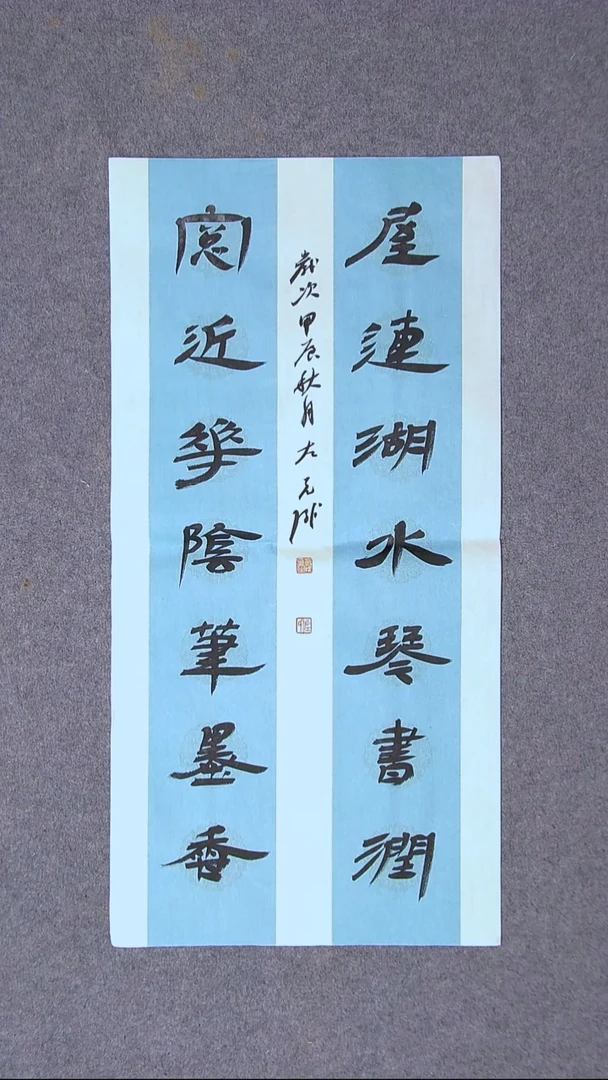 屋連湖水琴書潤
窗近華陰筆墨香
歲次甲辰秋月左